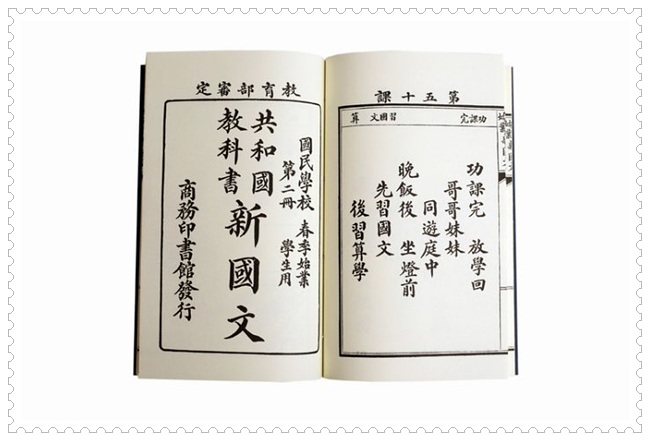 第五十課
功課完
習國文
算
功課完 放學回
哥哥妹妹
同遊庭中
晚飯後 坐燈前
先習國文
後習算學
教育部審定
國民學校 春季始業
第二冊 學生用
共和國
教科書
新國文
商務印書館發行